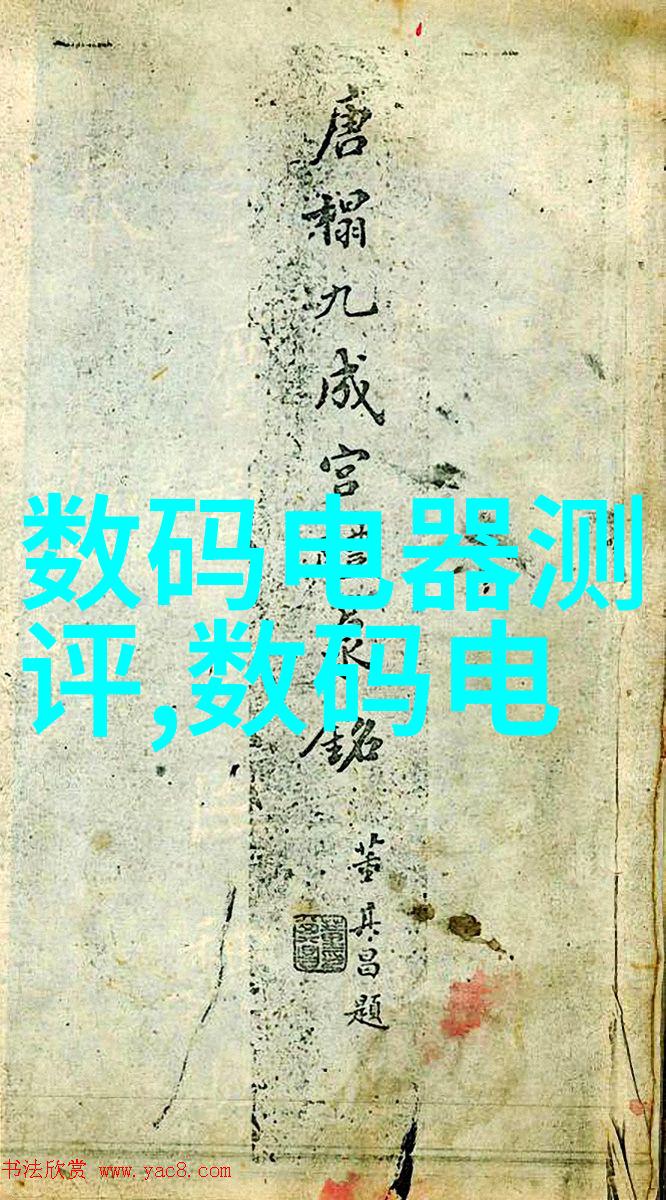 唐榻九成宫醴泉銘
董其昌題
数码电器测
评,数码电
书法欣赏 www.yac8.com